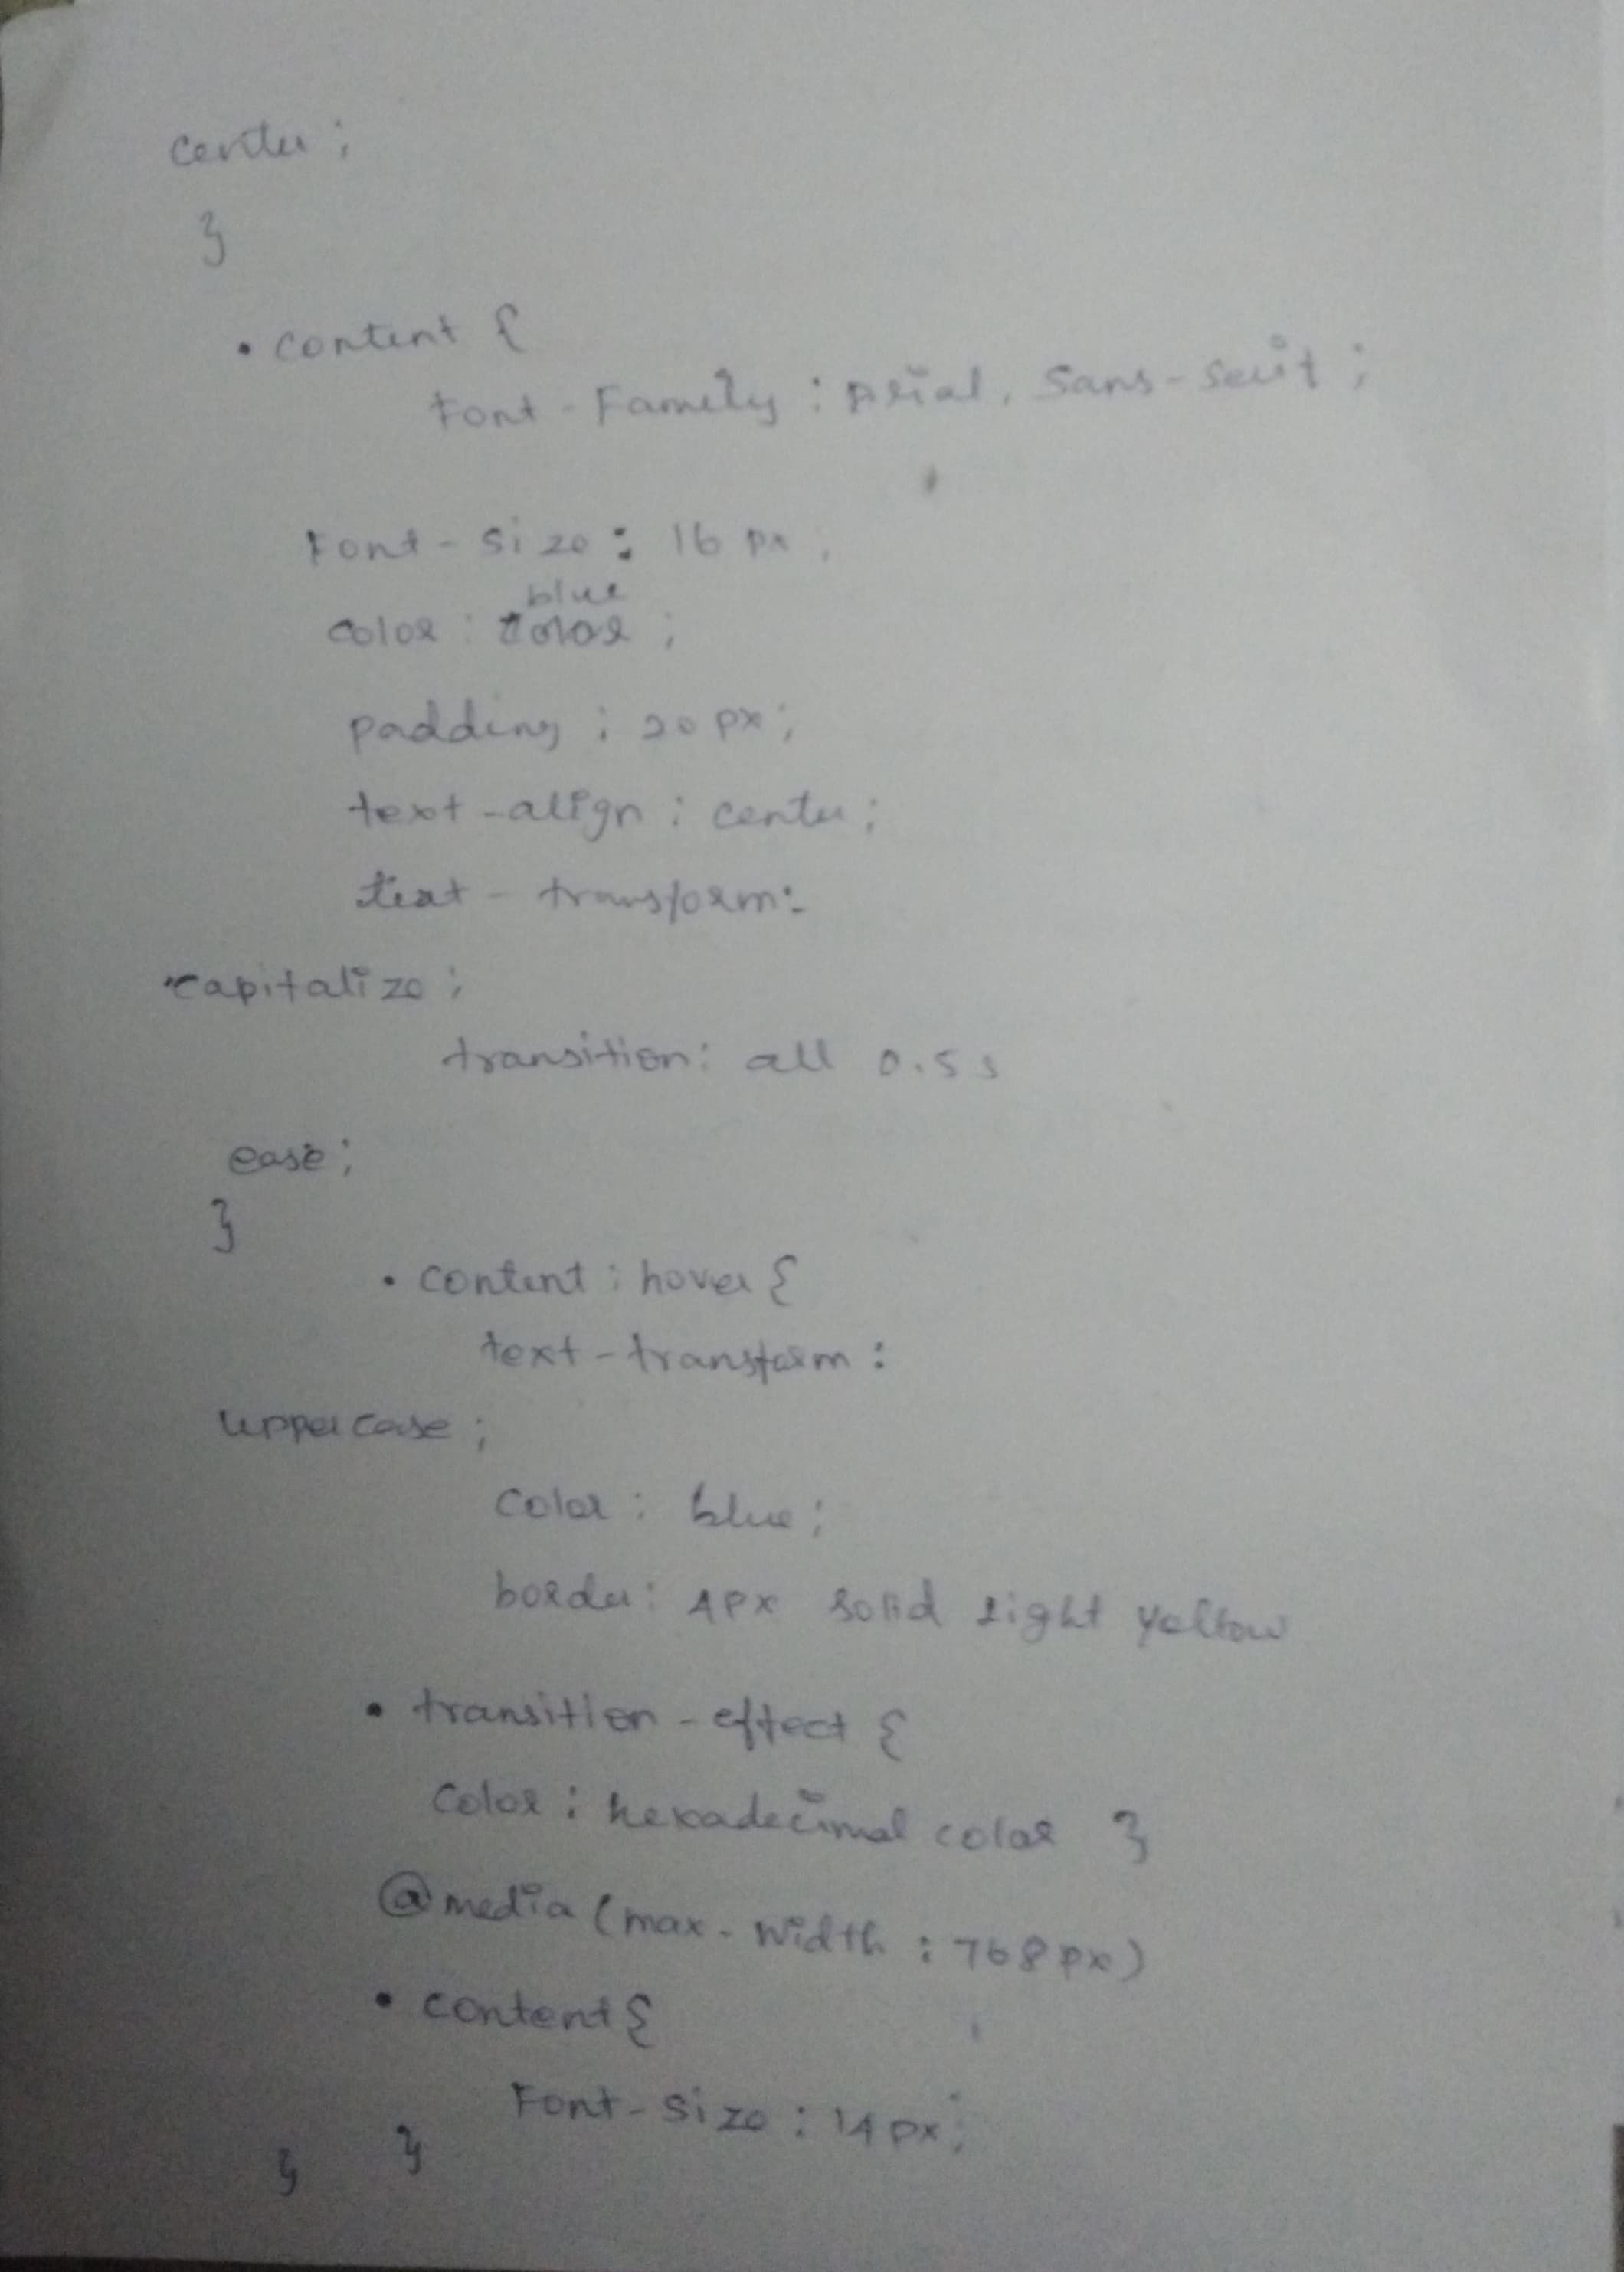 center;
}
. content {
Font-Family : Arial, Sans-serif ;
Font-size : 16 px ;
blue
color : color ;
padding : 20 px ;
text-align : center ;
text - transform :
capitalize ;
transition : all 0.5 s
ease ;
}
. content : hover {
text-transform :
uppercase ;
color : blue ;
border : 4px solid light yellow
. transition - effect {
color : hexadecimal color }
@media (max-width : 768px)
. content {
Font-size : 14px ;
} }